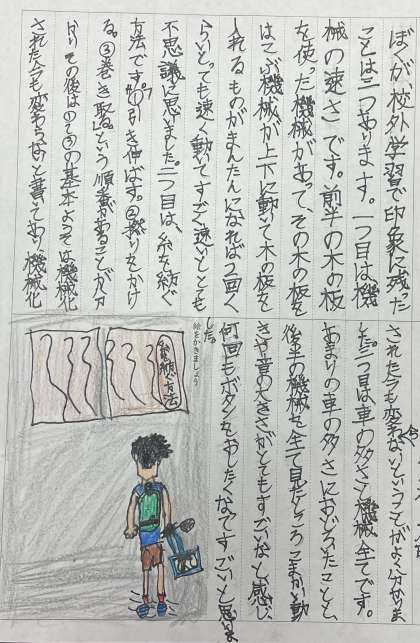 ぼくが校外学習で印象に残った
ことは三つあります。一つ目は機
械の速さです。前半の木の板
を使った機械があって、その木の板を
はこぶ機械が上下に動いて木の板を
入れるものがまんたんになれば2回く
らいとても速く動いてすごく速いととても
不思議に思いました。二つ目は、糸を紡ぐ
方法です。①引き伸ばす。②撚りをかけ
る。③巻き取る。という順番があることが分
かりその後は①②③の基本ようそは機械化
された今も変わらないと書いてあり、機械化
された今も変わらないということがよく分かりま
した。三つ目は車の多さと機械全てです。
あまりの車の多さにおどろいたことと、
後半の機械を全て見たところこまかい動
きや音の大きさがとてもすごいなと感じ、
何回もボタンをおしたくなてすごいと思いま
した。
絵をかきましょう
紡績方法